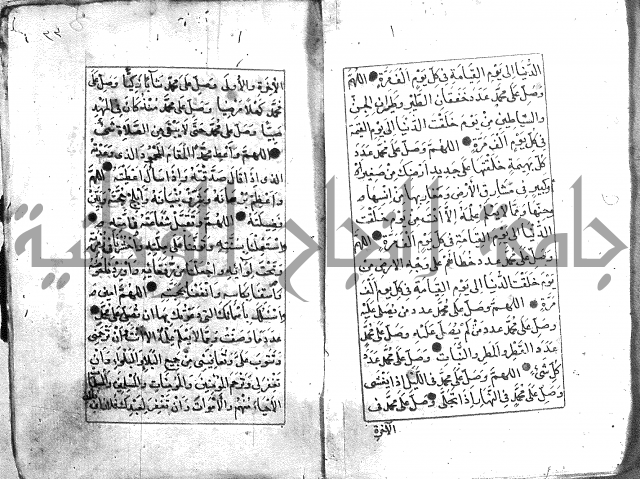 الدُّنْيَا إِلَى يَوْمِ الْقِيَامَةِ فِي كُلِّ يَوْمٍ أَلْفَ مَرَّةٍ اللَّهُمَّ
وَصَلِّ عَلَى مُحَمَّدٍ عَدَدَ خَفَقَانِ الطَّيْرِ وَطَيَرَانِ الْجِنِّ
وَالشَّيَاطِينِ مِنْ يَوْمِ خَلَقْتَ الدُّنْيَا إِلَى يَوْمِ الْقِيَمَةِ
فِي كُلِّ يَوْمٍ أَلْفَ مَرَّةٍ اللَّهُمَّ وَصَلِّ عَلَى مُحَمَّدٍ عَدَدَ
كُلِّ بَهِيمَةٍ خَلَقْتَهَا عَلَى جَدِيدِ أَرْضِكَ مِنْ صَغِيرٍ أَوْ
كَبِيرٍ فِي مَشَارِقِ الْأَرْضِ وَمَغَارِبِهَا مِنْ إِنْسِهَا وَ
جِنِّهَا وَمِمَّا لَا يَعْلَمُ عِلْمَهُ إِلَّا أَنْتَ مِنْ يَوْمِ خَلَقْتَ
الدُّنْيَا إِلَى يَوْمِ الْقِيَامَةِ فِي كُلِّ يَوْمٍ أَلْفَ مَرَّةٍ اللَّهُمَّ
وَصَلِّ عَلَى مُحَمَّدٍ عَدَدَ خُطَاهُمْ عَلَى وَجْهِ الْأَرْضِ مِنْ
يَوْمِ خَلَقْتَ الدُّنْيَا إِلَى يَوْمِ الْقِيَامَةِ فِي كُلِّ يَوْمٍ أَلْفَ
مَرَّةٍ اللَّهُمَّ وَصَلِّ عَلَى مُحَمَّدٍ عَدَدَ مَنْ يُصَلِّي عَلَيْهِ
وَصَلِّ عَلَى مُحَمَّدٍ عَدَدَ مَنْ لَمْ يُصَلِّ عَلَيْهِ وَصَلِّ عَلَى مُحَمَّدٍ
عَدَدَ الْقَطْرِ وَالْمَطَرِ وَالنَّبَاتِ وَصَلِّ عَلَى مُحَمَّدٍ عَدَدَ
كُلِّ شَيْءٍ اللَّهُمَّ وَصَلِّ عَلَى مُحَمَّدٍ فِي اللَّيْلِ إِذَا يَغْشَى
وَصَلِّ عَلَى مُحَمَّدٍ فِي النَّهَارِ إِذَا تَجَلَّى وَصَلِّ عَلَى مُحَمَّدٍ فِي
الْآخِرَةِ
الْآخِرَةِ وَالْأُولَى وَصَلِّ عَلَى مُحَمَّدٍ شَابًّا زَكِيًّا وَصَلِّ عَلَى
مُحَمَّدٍ كَهْلًا مَرْضِيًّا وَصَلِّ عَلَى مُحَمَّدٍ مُنْذُ كَانَ فِي الْمَهْدِ
صَبِيًّا وَصَلِّ عَلَى مُحَمَّدٍ حَتَّى لَا يَبْقَى مِنَ الصَّلَاةِ شَيْءٌ
اللَّهُمَّ وَأَعْطِ مُحَمَّدًا الْمَقَامَ الْمَحْمُودَ الَّذِي وَعَدْتَهُ
الَّذِي إِذَا قَالَ صَدَّقْتَهُ وَإِذَا سَأَلَ أَعْطَيْتَهُ اللَّهُمَّ
وَأَعْظِمْ بُرْهَانَهُ وَشَرِّفْ بُنْيَانَهُ وَأَبْلِجْ حُجَّتَهُ وَبَيِّنْ
فَضِيلَتَهُ اللَّهُمَّ وَتَقَبَّلْ شَفَاعَتَهُ فِي أُمَّتِهِ
وَاسْتَعْمِلْنَا بِسُنَّتِهِ وَتَوَفَّنَا عَلَى مِلَّتِهِ وَاحْشُرْنَا فِي زُمْرَتِهِ
وَتَحْتَ لِوَائِهِ وَاجْعَلْنَا مِنْ رُفَقَائِهِ وَأَوْرِدْنَا حَوْضَهُ
وَاسْقِنَا بِكَأْسِهِ وَانْفَعْنَا بِمَحَبَّتِهِ اللَّهُمَّ آمِينَ
وَأَسْأَلُكَ بِأَسْمَائِكَ الَّتِي دَعَوْتُكَ بِهَا أَنْ تُصَلِّيَ عَلَى مُحَمَّدٍ
عَدَدَ مَا وَصَفْتُ وَمِمَّا لَا يَعْلَمُ عِلْمَهُ إِلَّا أَنْتَ أَنْ تَرْحَمَنِي
وَتَتُوبَ عَلَيَّ وَتُعَافِيَنِي مِنْ جَمِيعِ الْبَلَاءِ وَالْبَلْوَاءِ وَأَنْ
تَغْفِرَ لِي وَتَرْحَمَ الْمُؤْمِنِينَ وَالْمُؤْمِنَاتِ وَالْمُسْلِمِينَ وَالْمُسْلِمَاتِ
الْأَحْيَاءِ مِنْهُمْ وَالْأَمْوَاتِ وَأَنْ تَغْفِرَ لِعَبْدِكَ
جامعة النجاح الوطنية